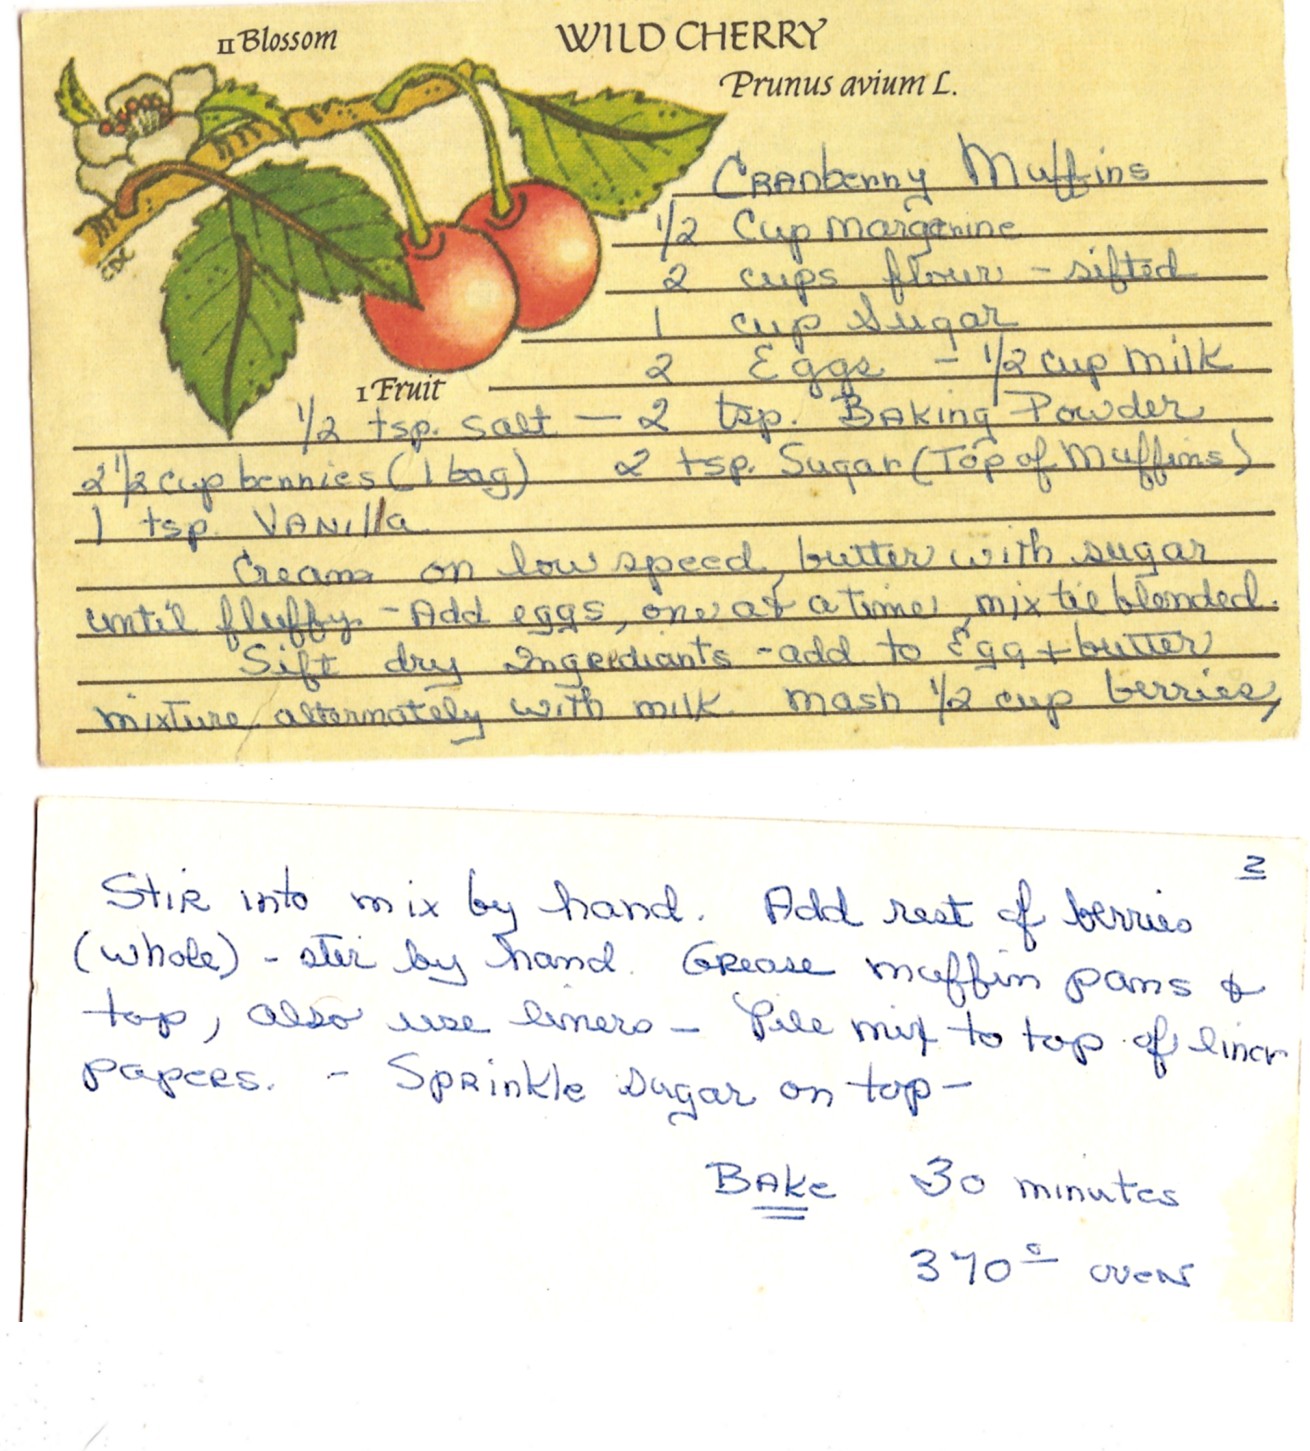 II Blossom
WILD CHERRY
Prunus avium L.
CDC
Cranberry Muffins
1/2 Cup margerine
2 cups flour - sifted
1 cup Sugar
2 Eggs - 1/2 cup milk
I Fruit
1/2 tsp. salt — 2 tsp. Baking Powder
2 1/2 cup berries (1 bag) 2 tsp. Sugar (Top of Muffins)
1 tsp. Vanilla
Cream on low speed, butter with sugar
until fluffy - Add eggs, one at a time, mix til blended.
Sift dry Ingrediants - add to Egg + butter
mixture, alternately with milk. Mash 1/2 cup berries,
2
Stir into mix by hand. Add rest of berries
(whole) - stir by hand. Grease muffin pans &
top, also use liners - Pile mix to top of liner
papers. - Sprinkle sugar on top -
Bake 30 minutes
370° oven